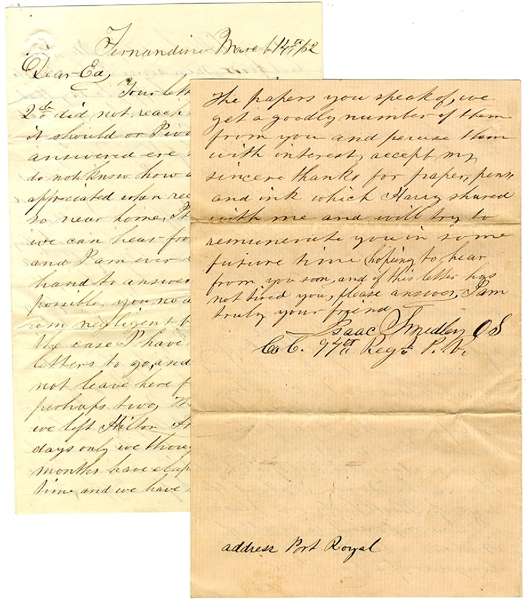 Fernandina March 14th/62
Dear Ed,
Your lette
2th did not reach
it should or I wou
answered ere
do not know how
appreciated when rec
so near home, Th
we can hear fro
and I am ever
hand to answer
possible, you no
am negligent b
the case I have
letters to go, and
not leave here f
perhaps two, Th
we left Hilton H
days only we thoug
months have elap
time and we have
The papers you speak of, we
get a goodly number of them
from you and peruse them
with interest, accept my
sincere thanks for paper, pens,
and ink which Harry shared
with me and will try to
remunerate you in some
future time hoping to hear
from you soon, and if this letter has
not tired you, please answer, I am
truly your friend
Isaac Smedley O S
Co C. 97th Regt P. V.
address Port Royal